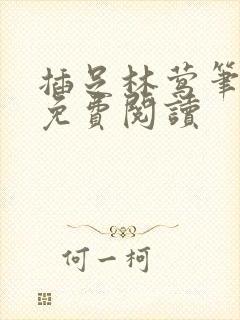 插足林莺筆
免費閱讀
何一柯